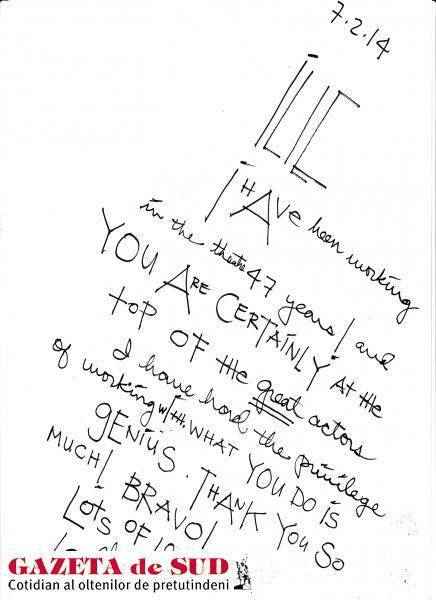 7.2.14
ILIE
I HAVE been working
in the theatre 47 years! and
YOU ARE CERTAINLY AT the
top OF the great actors
I have had the privilege
of working with. WHAT YOU DO IS
GENIUS. THANK YOU SO
MUCH! BRAVO!
LOTS OF
GAZETA de SUD
Cotidian al oltenilor de pretutindeni